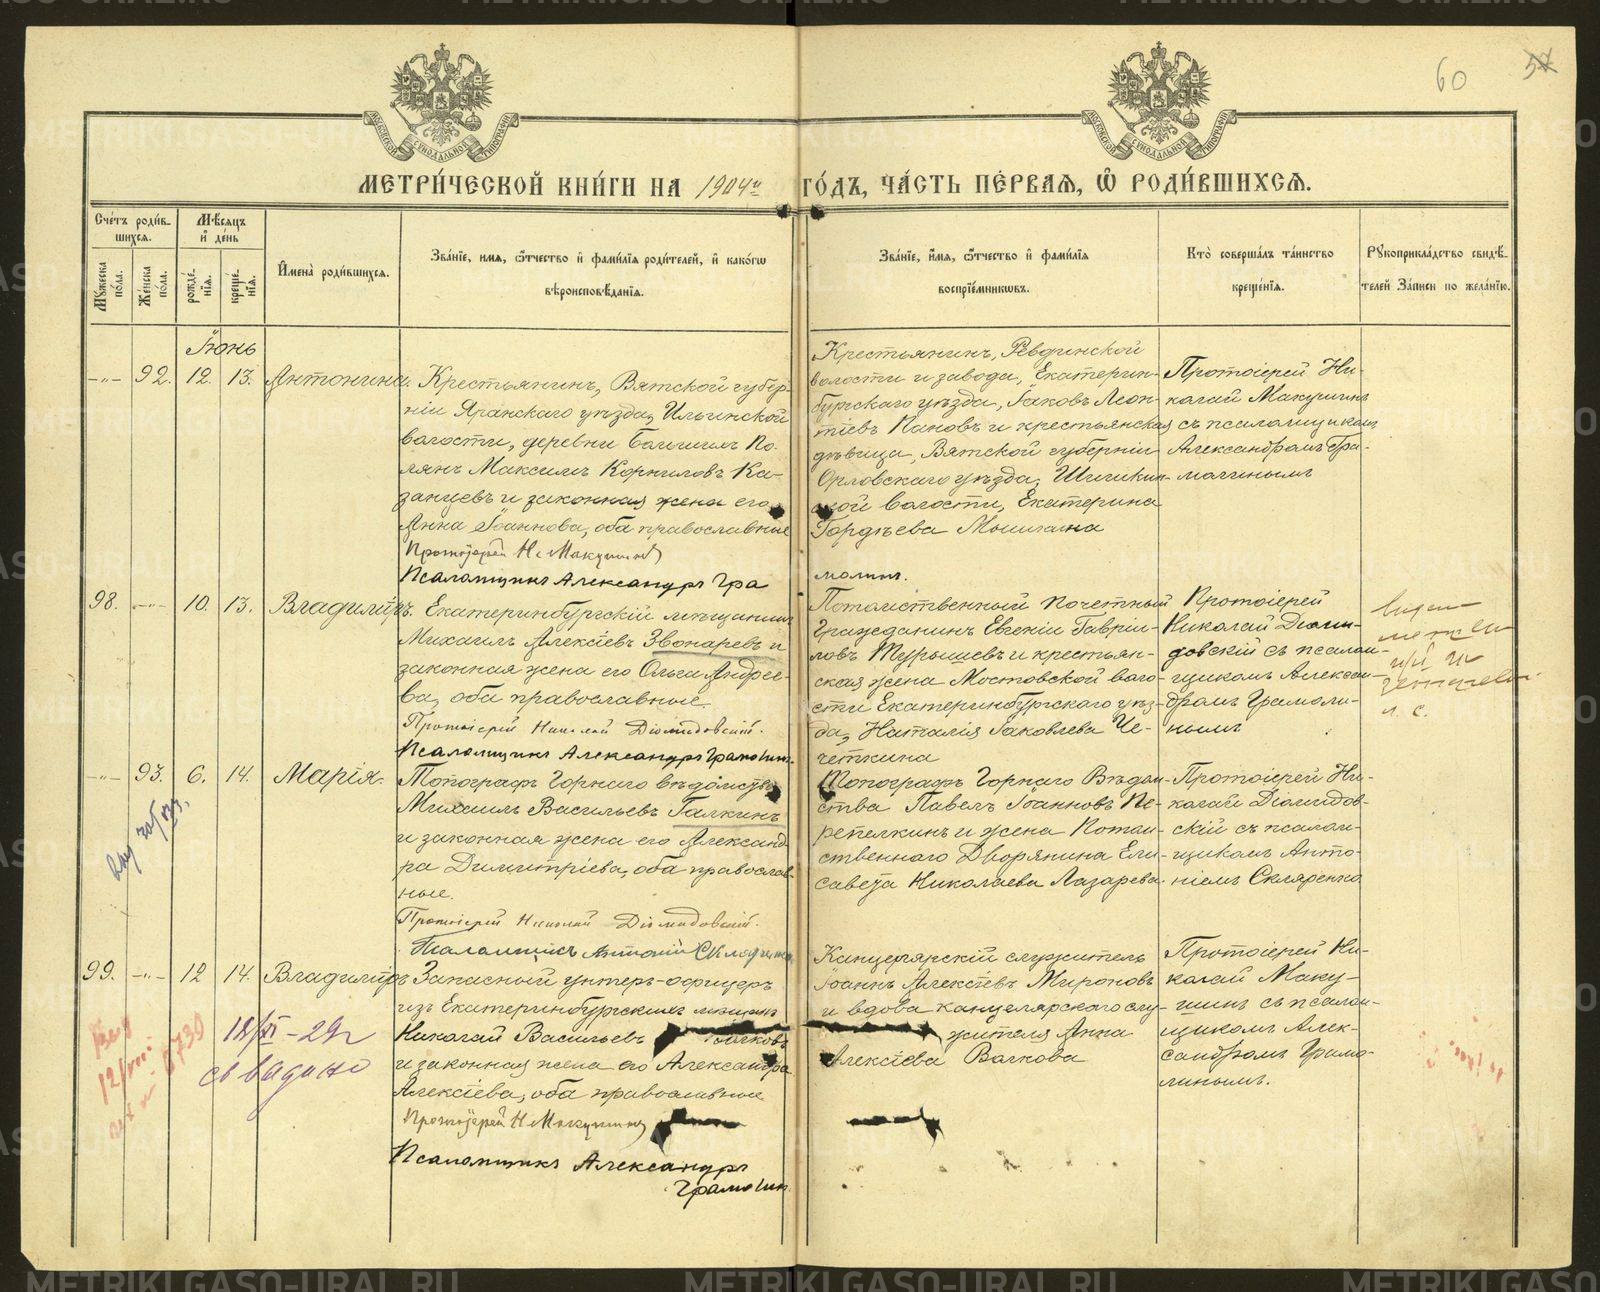 60 57
МЕТРИ́ЧЕСКОЙ КНИ́ГИ НА 1904й ГО́ДЪ, ЧА́СТЬ ПЕ́РВАЯ, Ѿ РОДИ́ВШИХСЯ.
Сче́тъ роди́в-
шихся.
Мѣ́сяцъ
и де́нь
Му́жеска по́ла.
Же́нска по́ла.
рожде́нія.
креще́нія.
Имена̀ роди́вшихся.
Зва́ніе, имя, о́тчество и фами́лія роди́телей, и како́гѡ
вѣроисповѣ́данія.
Зва́ніе, имя, о́тчество и фами́лія
воспріе́мникѡвъ.
Кто̀ соверша́лъ та́инство
креще́нія.
Рукоприкла́дство свидѣ́-
телей за́писи по жела́нію.
Іюнь
—"— 92. 12. 13. Антонина.
Крестьянинъ, Вятской губер-
ніи Яранскаго уѣзда, Ильинской
волости, деревни Большихъ По-
лянъ Максимъ Корниловъ Ка-
занцевъ и законная жена его
Анна Іоаннова, оба православные
Протоіерей Н. Макушинъ
Псаломщикъ Александръ Гра
молин.
Крестьянинъ, Ревдинской
волости и завода, Екатерин-
бургскаго уѣзда, Іаковъ Леон-
тіевъ Пановъ и крестьянская
дѣвица, Вятской губерніи
Орловскаго уѣзда, Шишкин-
ской волости, Екатерина
Гордѣева
Протоіерей Ни-
колай Макушинъ
съ псаломщикомъ
Александромъ Гра-
молинымъ
98. —"— 10. 13. Владиміръ.
Екатеринбургскій мѣщанинъ
Михаилъ Алексіевъ Звонаревъ и
законная жена его Ольга Андрее-
ва, оба православные.
Протоіерей Николай Діомидовскій.
Псаломщикъ Александръ Грамолин.
Потомственный Почетный
Гражданинъ Евгеній Гаврии-
ловъ Турышевъ и крестьян-
ская жена Мостовской воло-
сти Екатеринбургскаго уѣз-
да, Наталія Іаковлева Че-
четкина
Протоіерей
Николай Діоми-
довскій съ псалом-
щикомъ Алексан-
дромъ Грамоли-
нымъ
—"— 93. 6. 14. Марія.
Топографъ Горнаго вѣдомства
Михаилъ Васильевъ Галкинъ
и законная жена его Александ-
ра Димитріева, оба православ-
ные.
Протоіерей Николай Діомидовскій.
Псаломщикъ Антоній Скляренко
Топографъ Горнаго Вѣдом-
ства Павелъ Іоанновъ Пе-
репелкинъ и жена Потом-
ственнаго Дворянина Ели-
савета Николаева Лазарева.
Протоіерей Ни-
колай Діомидов-
скій съ псалом-
щикомъ Анто-
ніемъ Скляренко
99. —"— 12 14. Владиміръ
Запасный унтеръ-офицеръ
изъ Екатеринбургскихъ мѣщанъ
Николай Васильевъ
и законная жена его Александра
Алексіева, оба православные
Протоіерей Н. Макушинъ
Псаломщикъ Александръ
Грамолин.
Канцелярскій служитель
Іоаннъ Алексіевъ Мироновъ
и вдова канцелярскаго слу-
жителя Анна
Алексіева Волкова
Протоіерей Ни-
колай Маку-
шинъ съ псалом-
щикомъ Алек-
сандромъ Грамо-
линымъ.
18/XI–29г
METRIKI.GASO-URAL.RU